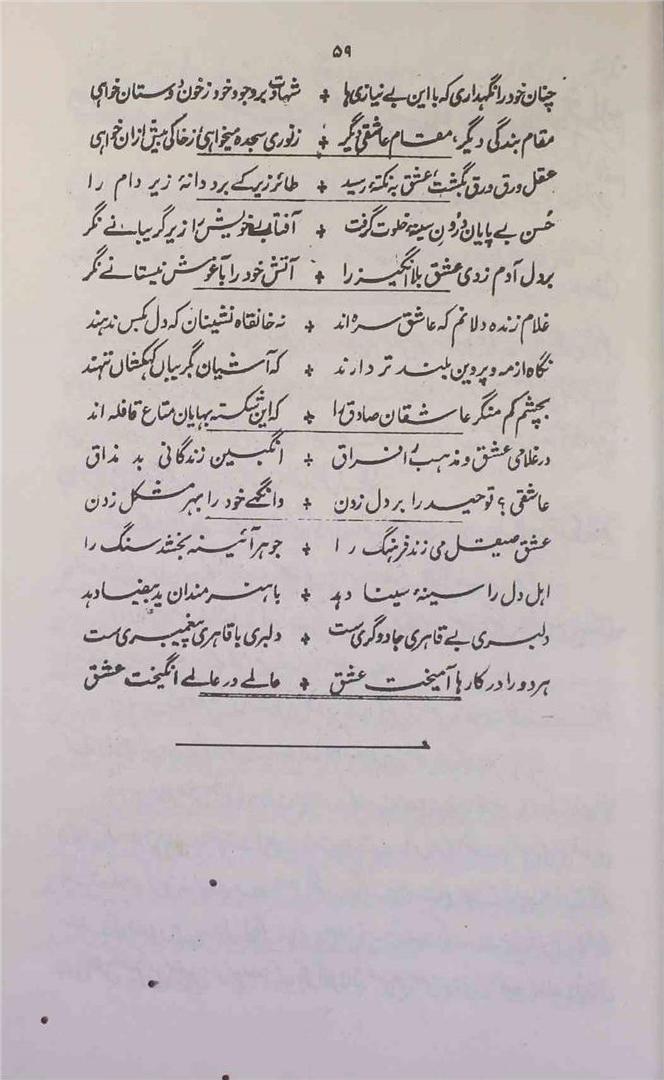 ۵۹
چنان خود را نگہداری کہ با ایں بے نیازی ہا + شہادت بر وجود خود ز خون دوستان خواہی
مقام بندگی دیگر، مقام عاشقی دیگر + ز نوری سجدہ میخواہی ز خاکی بیش ازان خواہی
عقل ورق ورق بگشت عشق بہ نکتہ رسید + طائر زیرکے برد دانۂ زیر دام را
حُسن بے پایان درون سینۂ خلوت گرفت + آفتاب خویش را زیر گریبانے نگر
بر دل آدم زدی عشق بلا انگیز را + آتش خود را بآغوش نیستانے نگر
غلام زندہ دلانم کہ عاشق سرہ اند + نہ خانقاہ نشینان کہ دل بکس ندہند
نگاہ از مہ و پروین بلند تر دارند + کہ آشیان بگریباں کہکشاں نہند
بچشم کم منگر عاشقان صادق را + کہ این شکستہ بہایان متاع قافلہ اند
در غلامی عشق و مذہب را فراق + انگبین زندگانی بد مذاق
عاشقی؟ توحید را بر دل زدن + وانگہے خود را بہر مشکل زدن
عشق صیقل می زند فرہنگ را + جوہر آئینہ بخشد سنگ را
اہل دل را سینۂ سینا دہد + با ہنرمندان ید بیضا دہد
دلبری بے قاہری جادوگری ست + دلبری با قاہری پیغمبری ست
ہر دو را در کارہا آمیخت عشق + عالمے در عالمے انگیخت عشق